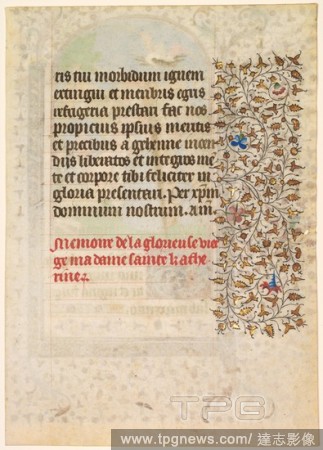 tis tui morbidum ignem
extingui et membris egris
refrigeria prestari fac nos
propicius ipsius meritis
et precibus a gehenne incen
dijs liberatos et integros me
te et corpore tibi feliciter in
gloria presentari. Per xpm
dominum nostrum. am̄.
Memoire de la glorieuse vier
ge ma dame sainte kathe
rine.
TPG
www.tpgnews.com / 達志影像